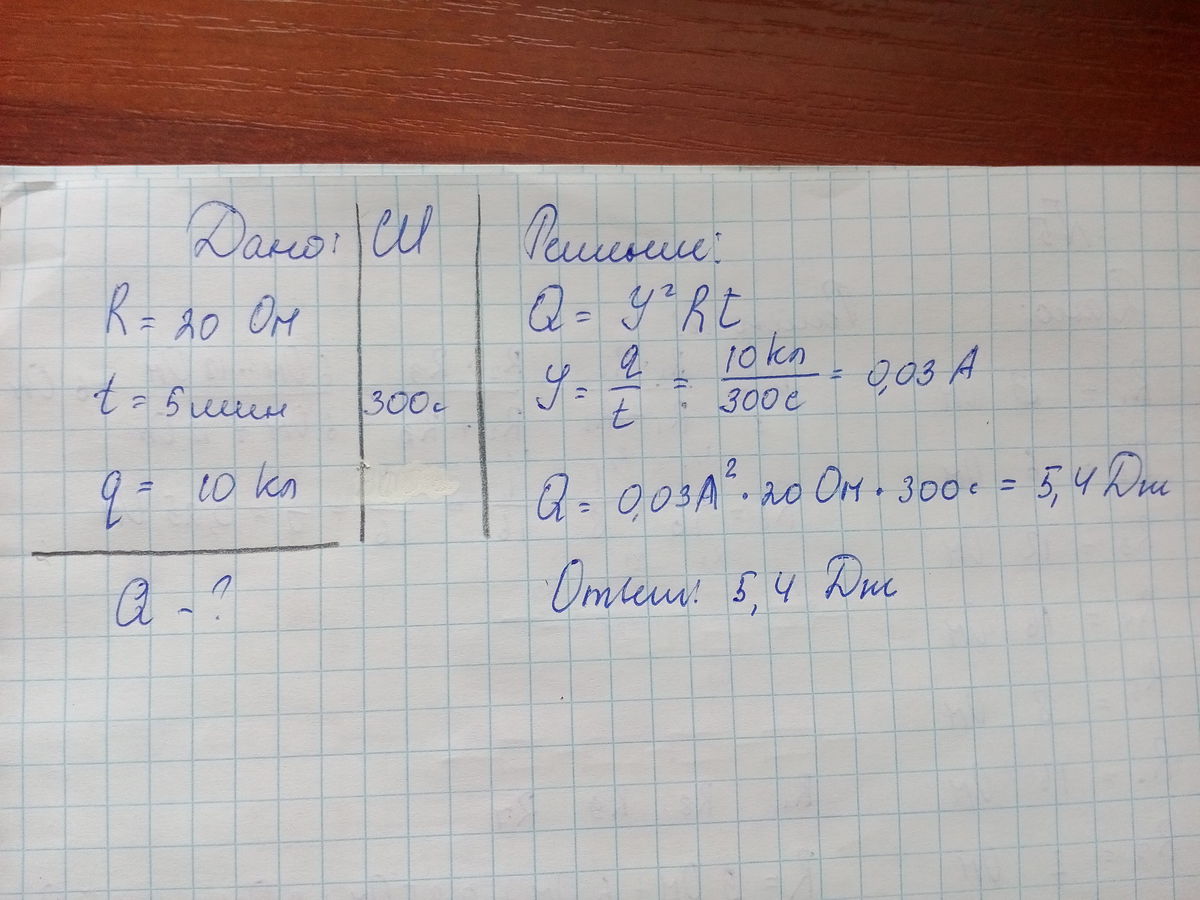 Дано:
СИ
R = 20 Ом
t = 5 мин
300с
q = 10 Кл
Q - ?
Решение:
Q = У² R t
У = q/t = 10 Кл/300с = 0,03 А
Q = 0,03А² · 20 Ом · 300с = 5,4 Дж
Ответ: 5,4 Дж